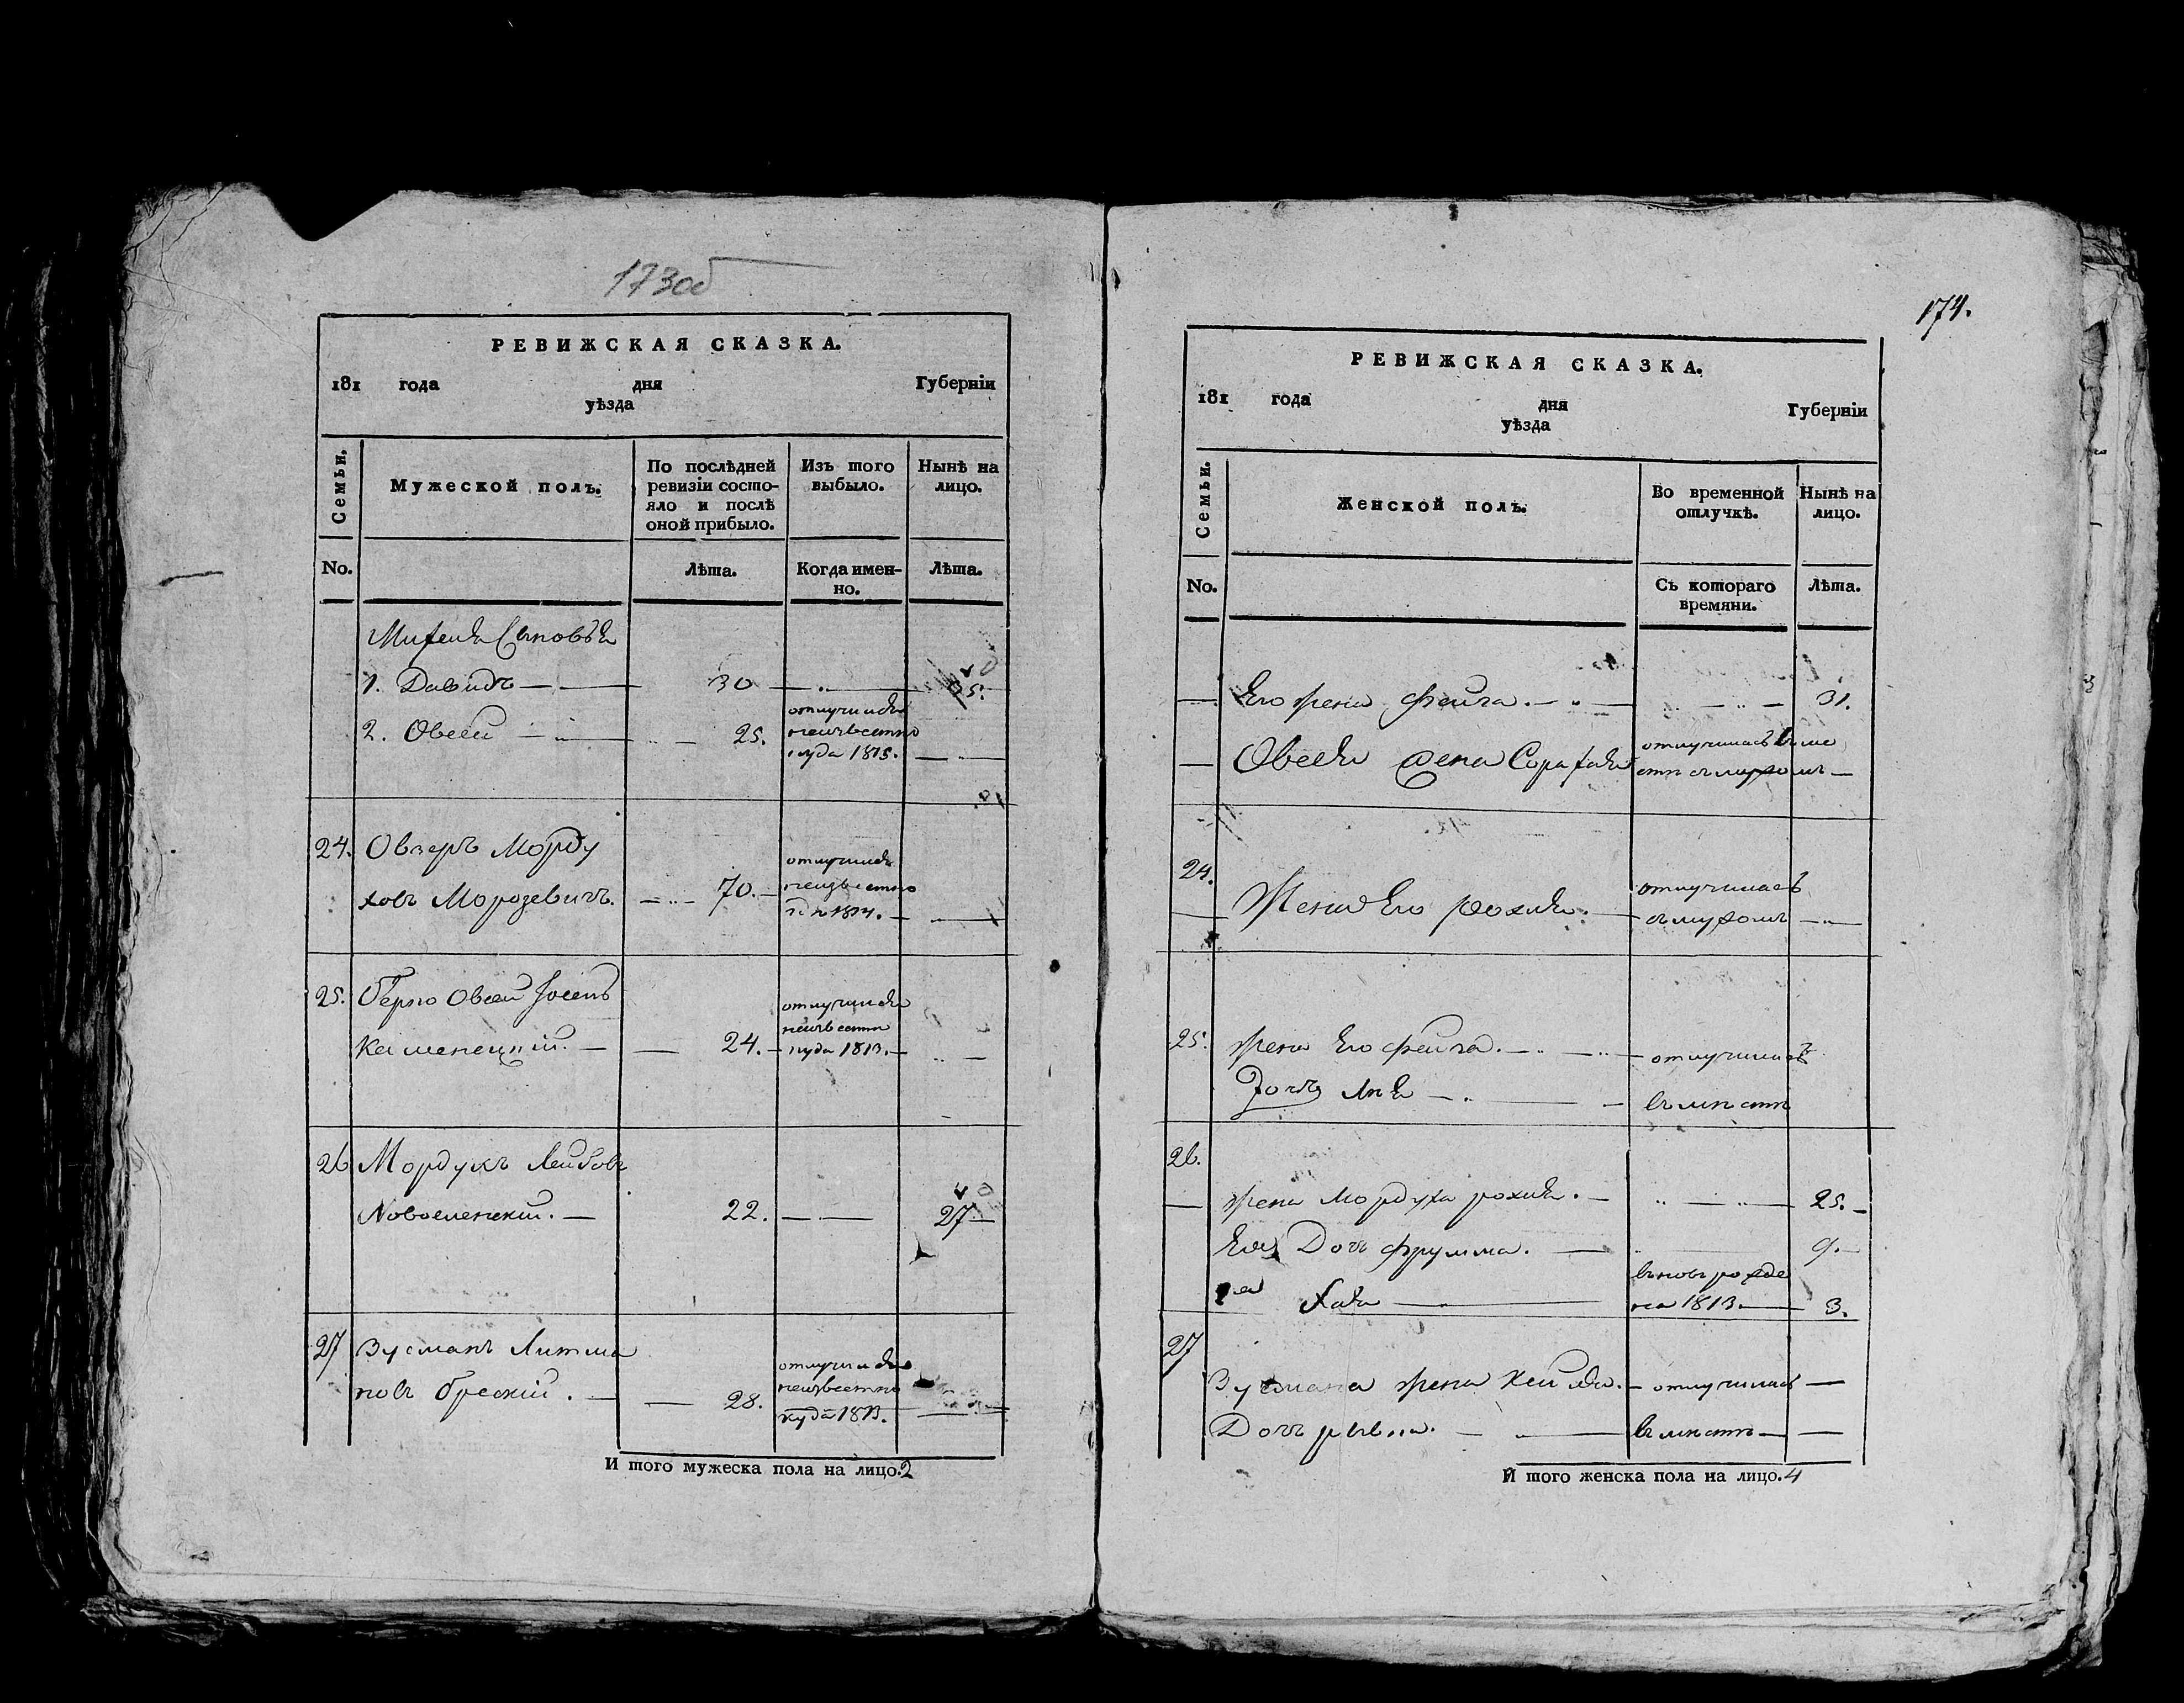 173об
РЕВИЖСКАЯ СКАЗКА.
181 года дня Губернїи
уѣзда
Семьи.
Мужеской полъ.
По послѣдней ревизїи состо-
яло и послѣ
оной прибыло.
Изъ того выбыло.
Нынѣ на лицо.
No.
Лѣта.
Когда имен-
но.
Лѣта.
Сыновья
1. Давидъ 30 35.
2. Овсей 25.
отлучился
неизвестно
куда 1815.
24. Овзеръ Морду
ховъ Морозевичъ. 70.
отлучился
неизвестно
1814.
25. Берко Овсей
Каменецкій. 24.
отлучился
неизвестно
куда 1813.
26 Мордухъ Лейбовъ
22. 27
27 Зусманъ Литма
новъ Брескій. 28.
отлучился
неизвестно
куда 1813.
И того мужеска пола на лицо. 2
174.
РЕВИЖСКАЯ СКАЗКА.
181 года дня Губернїи
уѣзда
Семьи.
Женской полъ.
Во временной отлучкѣ.
Нынѣ на лицо.
No.
Съ котораго времяни.
Лѣта.
Его жена Фейга. 31.
Овсея жена
отлучилась вме
сте съ мужомъ
24.
Жена Его Рохля.
отлучилась
съ мужомъ
25. жена Его Фейга. отлучилась
Дочь вместе
26.
жена Мордуха рохля. 25.
Его Дочь Фрумма. 9.
2я Хая
вновь рожде
на 1813. 3.
27
Зусмана жена отлучилась
Дочь рывка. вместе
И того женска пола на лицо. 4